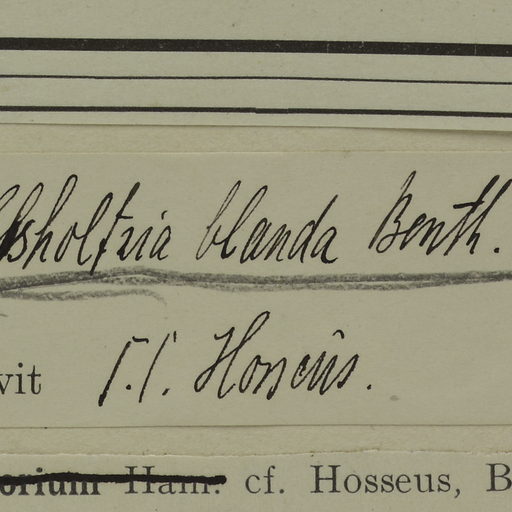 Elsholtzia blanda Benth.
vit C.C. Hosseûs.
orium Ham. cf. Hosseus, B